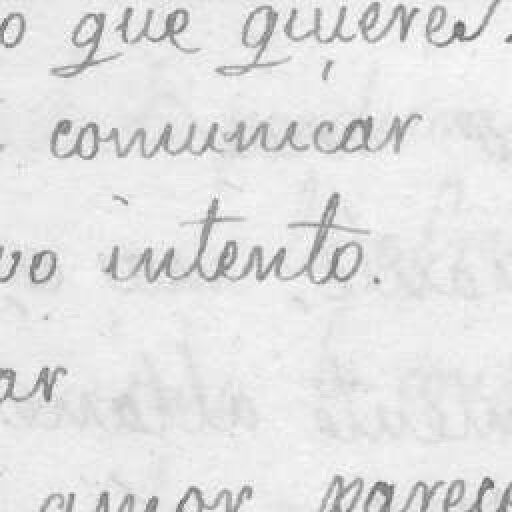 o que quieres.
comunicar
vo intento.
ar
amor parece